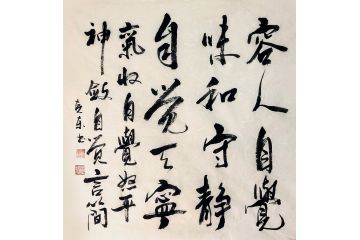 容人自覺
味和守静
自觉天寧
氣收自覺怒平
神斂自觉言簡